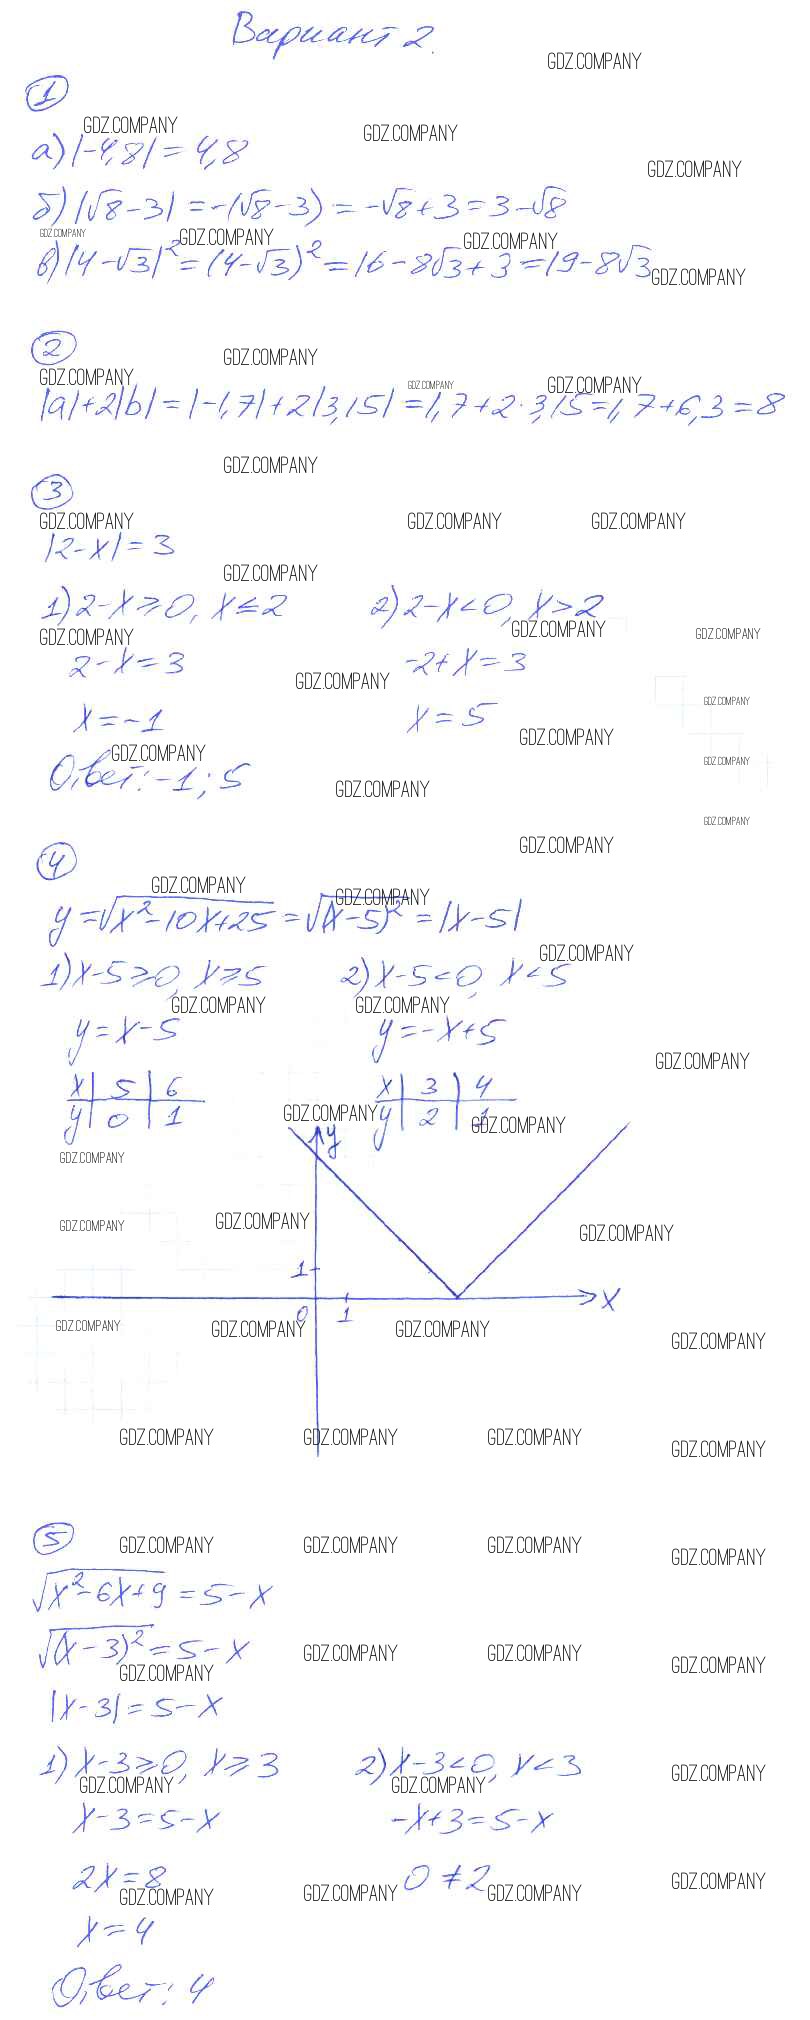 Вариант 2.
GDZ.COMPANY
1
GDZ.COMPANY GDZ.COMPANY
а) |-4,8| = 4,8
GDZ.COMPANY
б) |√8-3| = -(√8-3) = -√8+3 = 3-√8
GDZ.COMPANY GDZ.COMPANY GDZ.COMPANY
в) |4-√3|² = (4-√3)² = 16-8√3+3 = 19-8√3
GDZ.COMPANY
2
GDZ.COMPANY
GDZ.COMPANY GDZ.COMPANY GDZ.COMPANY
|a|+2|b| = |-1,7|+2|3,15| = 1,7+2·3,15 = 1,7+6,3 = 8
GDZ.COMPANY
3
GDZ.COMPANY GDZ.COMPANY GDZ.COMPANY
|2-x| = 3
GDZ.COMPANY
1) 2-x⩾0, x⩽2 2) 2-x<0, x>2
GDZ.COMPANY GDZ.COMPANY GDZ.COMPANY
2-x=3 -2+x=3
GDZ.COMPANY GDZ.COMPANY
x=-1 x=5
GDZ.COMPANY GDZ.COMPANY GDZ.COMPANY
Ответ: -1; 5
GDZ.COMPANY
GDZ.COMPANY
GDZ.COMPANY
4
GDZ.COMPANY GDZ.COMPANY
y=√x²-10x+25 = √(x-5)² = |x-5|
GDZ.COMPANY
1) x-5⩾0, x⩾5 2) x-5<0, x<5
GDZ.COMPANY GDZ.COMPANY
y=x-5 y=-x+5
GDZ.COMPANY
x | 5 | 6 x | 3 | 4
y | 0 | 1 y | 2 | 1
GDZ.COMPANY GDZ.COMPANY
y
GDZ.COMPANY
GDZ.COMPANY GDZ.COMPANY GDZ.COMPANY
1
0 1 x
GDZ.COMPANY GDZ.COMPANY GDZ.COMPANY GDZ.COMPANY
GDZ.COMPANY GDZ.COMPANY GDZ.COMPANY GDZ.COMPANY
5
GDZ.COMPANY GDZ.COMPANY GDZ.COMPANY GDZ.COMPANY
√x²-6x+9 = 5-x
√(x-3)² = 5-x
GDZ.COMPANY GDZ.COMPANY GDZ.COMPANY GDZ.COMPANY
|x-3| = 5-x
1) x-3⩾0, x⩾3 2) x-3<0, x<3
GDZ.COMPANY GDZ.COMPANY GDZ.COMPANY
x-3=5-x -x+3=5-x
2x=8 0≠2
GDZ.COMPANY GDZ.COMPANY GDZ.COMPANY GDZ.COMPANY
x=4
Ответ: 4